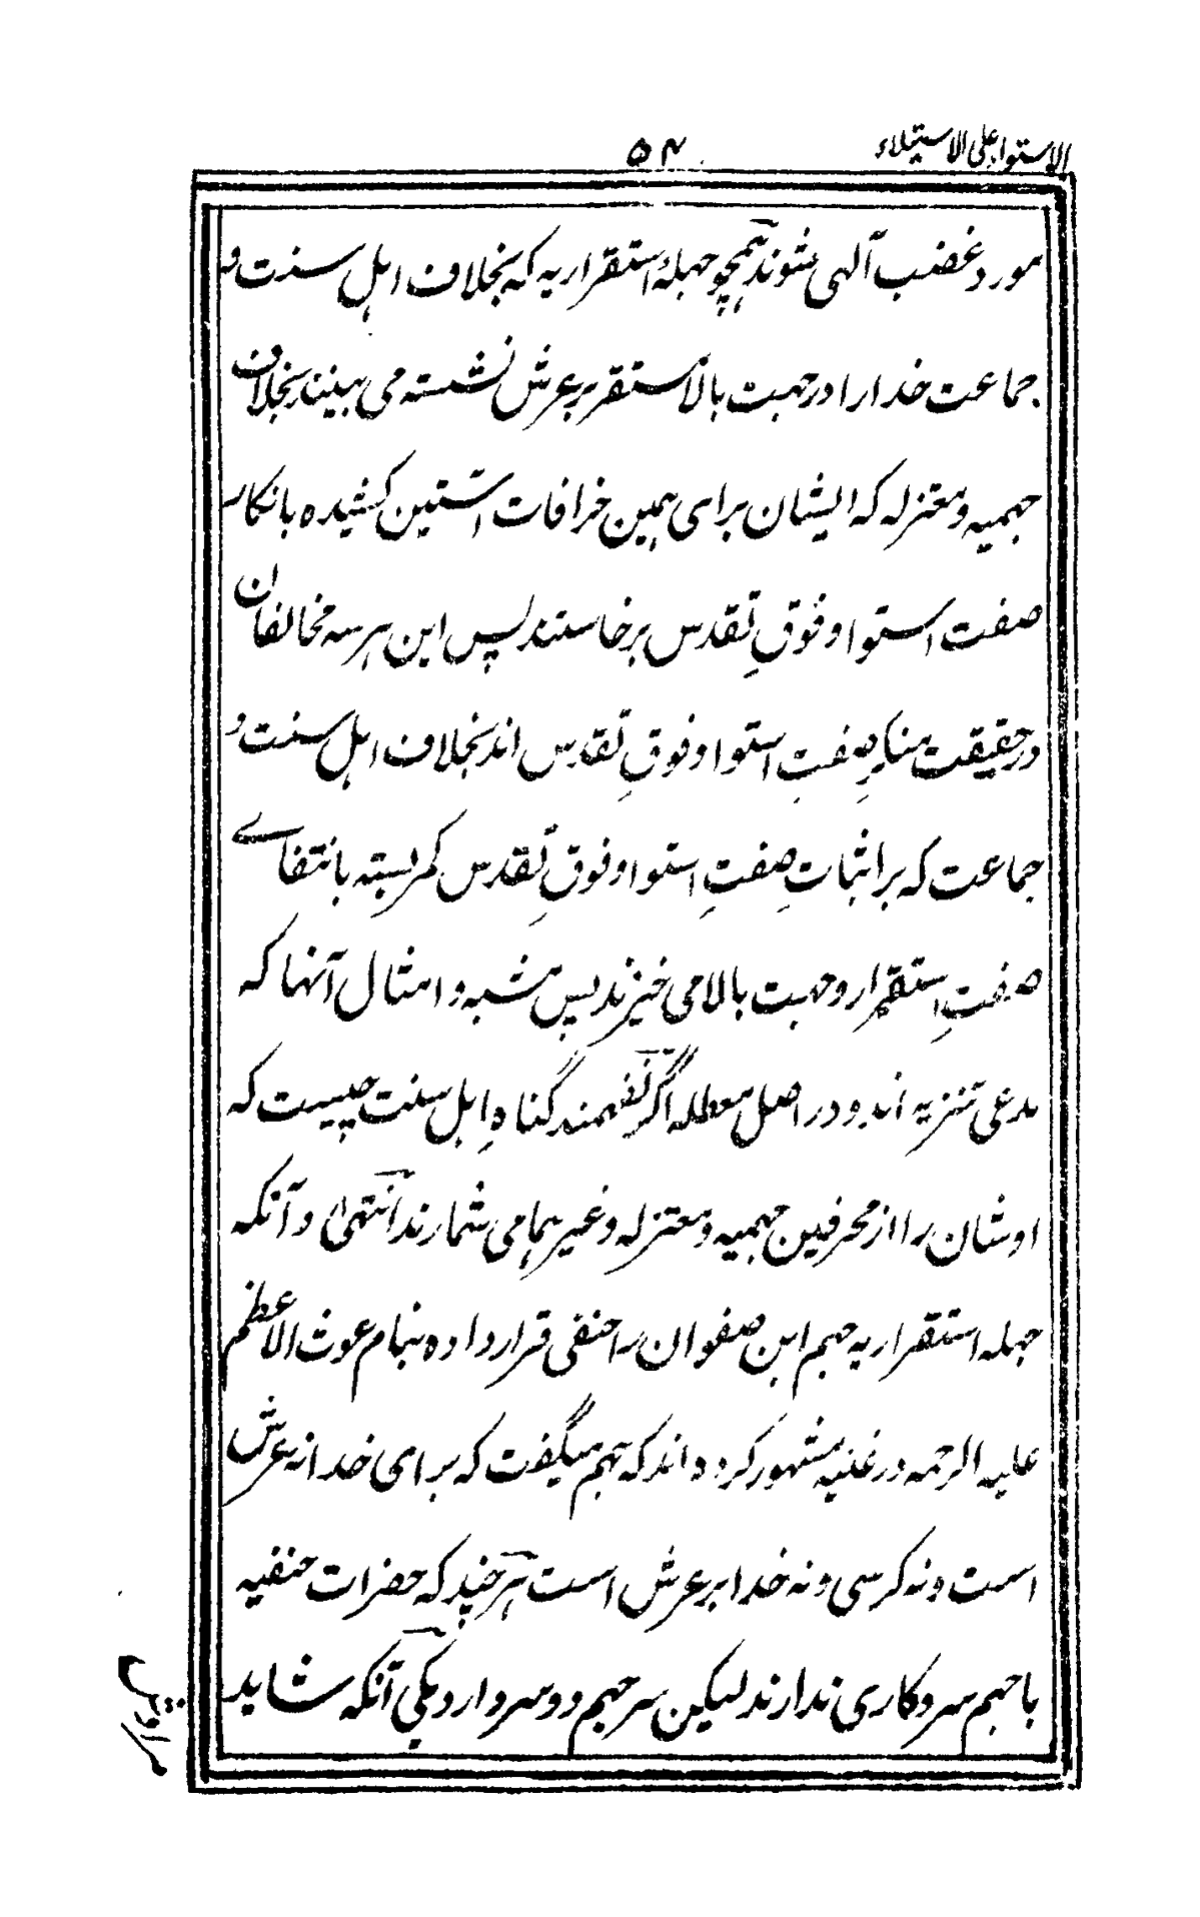 الاستواء علی الاستیلاء
۵۴
مورد غضب آلهی شوند همچو جهلهٔ استقراریه که بخلاف اهل سنت و
جماعت خدا را در جهت بالا مستقر بر عرش نشسته می بینند بخلاف
جهمیه و معتزله که ایشان برای همین خرافات استین کشیده بانکار
صفت استوا و فوقِ تقدس برخاستند پس این هر سه مخالفان
در حقیقت منکرِ صفتِ استوا و فوقِ تقدس اند بخلاف اهل سنت و
جماعت که بر اثباتِ صفتِ استوا و فوقِ تقدس کمر بسته بانتفاے
صفتِ استقرار و جهت بالا می خیزند پس مشبه و امثال آنها که
مدعی تنزیه اند و در اصل معطله اگر نفهمند گناهِ اهل سنت چیست که
اوشان را از محرفین جهمیه و معتزله و غیر هما می شمارند انتهیٰ و آنکه
جهله استقراریه جهم ابن صفوان را حنفی قرار داده بنام غوث الاعظم
علیه الرحمه در غنیه مشهور کرده اند که جهم میگفت که برای خدا نه عرش
است و نه کرسی و نه خدا بر عرش است هر چند که حضرات حنفیه
با جهم سروکاری ندارند لیکن سر جهم دو سر دارد یکی آنکه شاید
مرادش